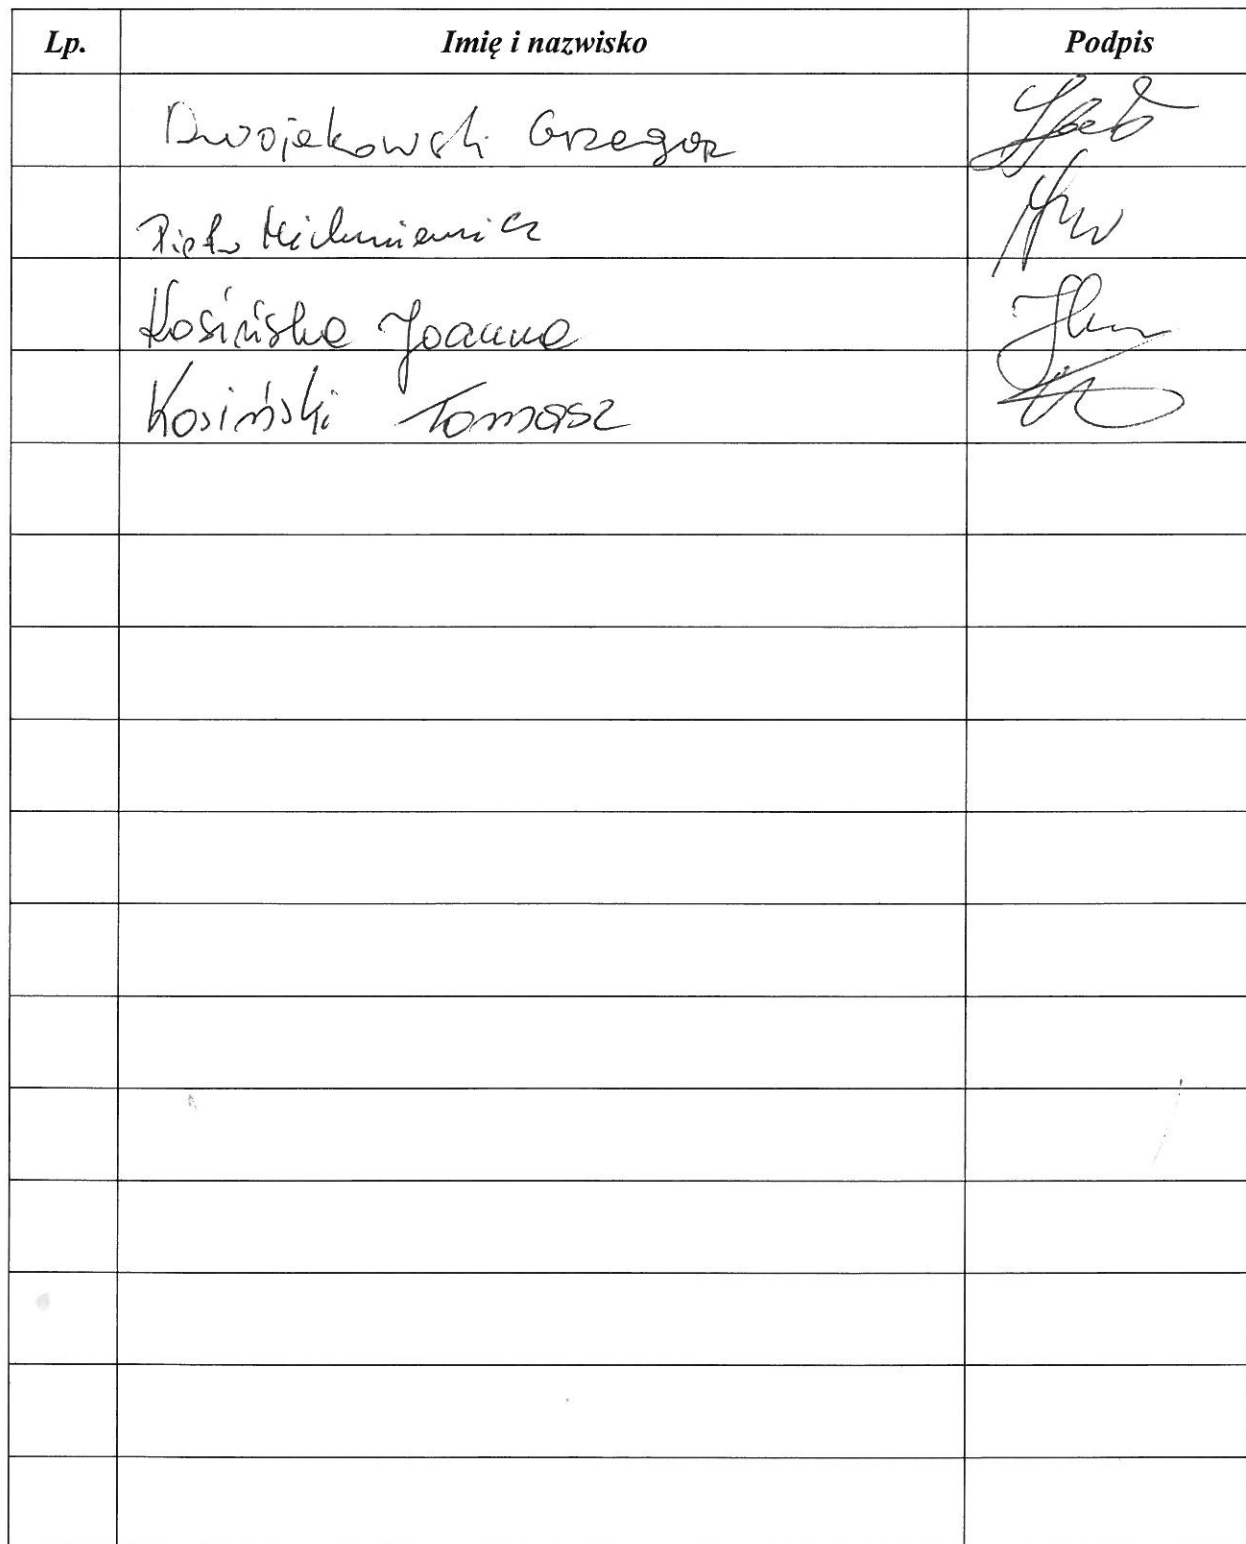 Lp. Imię i nazwisko Podpis
Dwojakowski Grzegorz
Piotr Michniewicz
Kosińska Joanna
Kosiński Tomasz